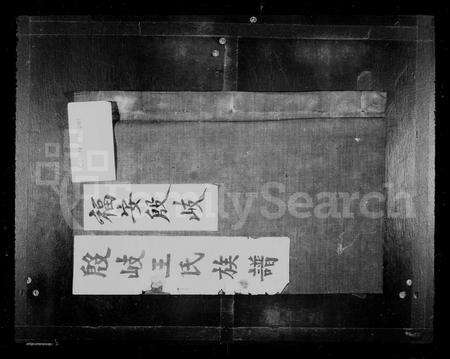 福安殷岐
殷岐王氏族譜
FamilySearch